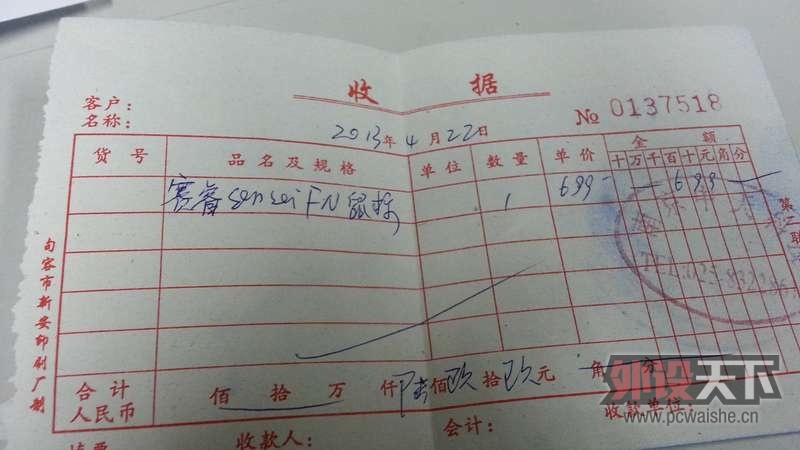 收 据
客户：
名称：
№ 0137518
2013年 4月 22日
货号 品名及规格 单位 数量 单价 金额
十万千百十元角分
赛睿 Sensei FN 鼠标 1 699- 699
第二联
TEL:025-832286
句容市新安印刷厂制
合计人民币 佰 拾 万 仟 陆佰 玖拾 玖元 角 分
收款人： 会计： 收款单位
外设天下
www.pcwaishe.cn